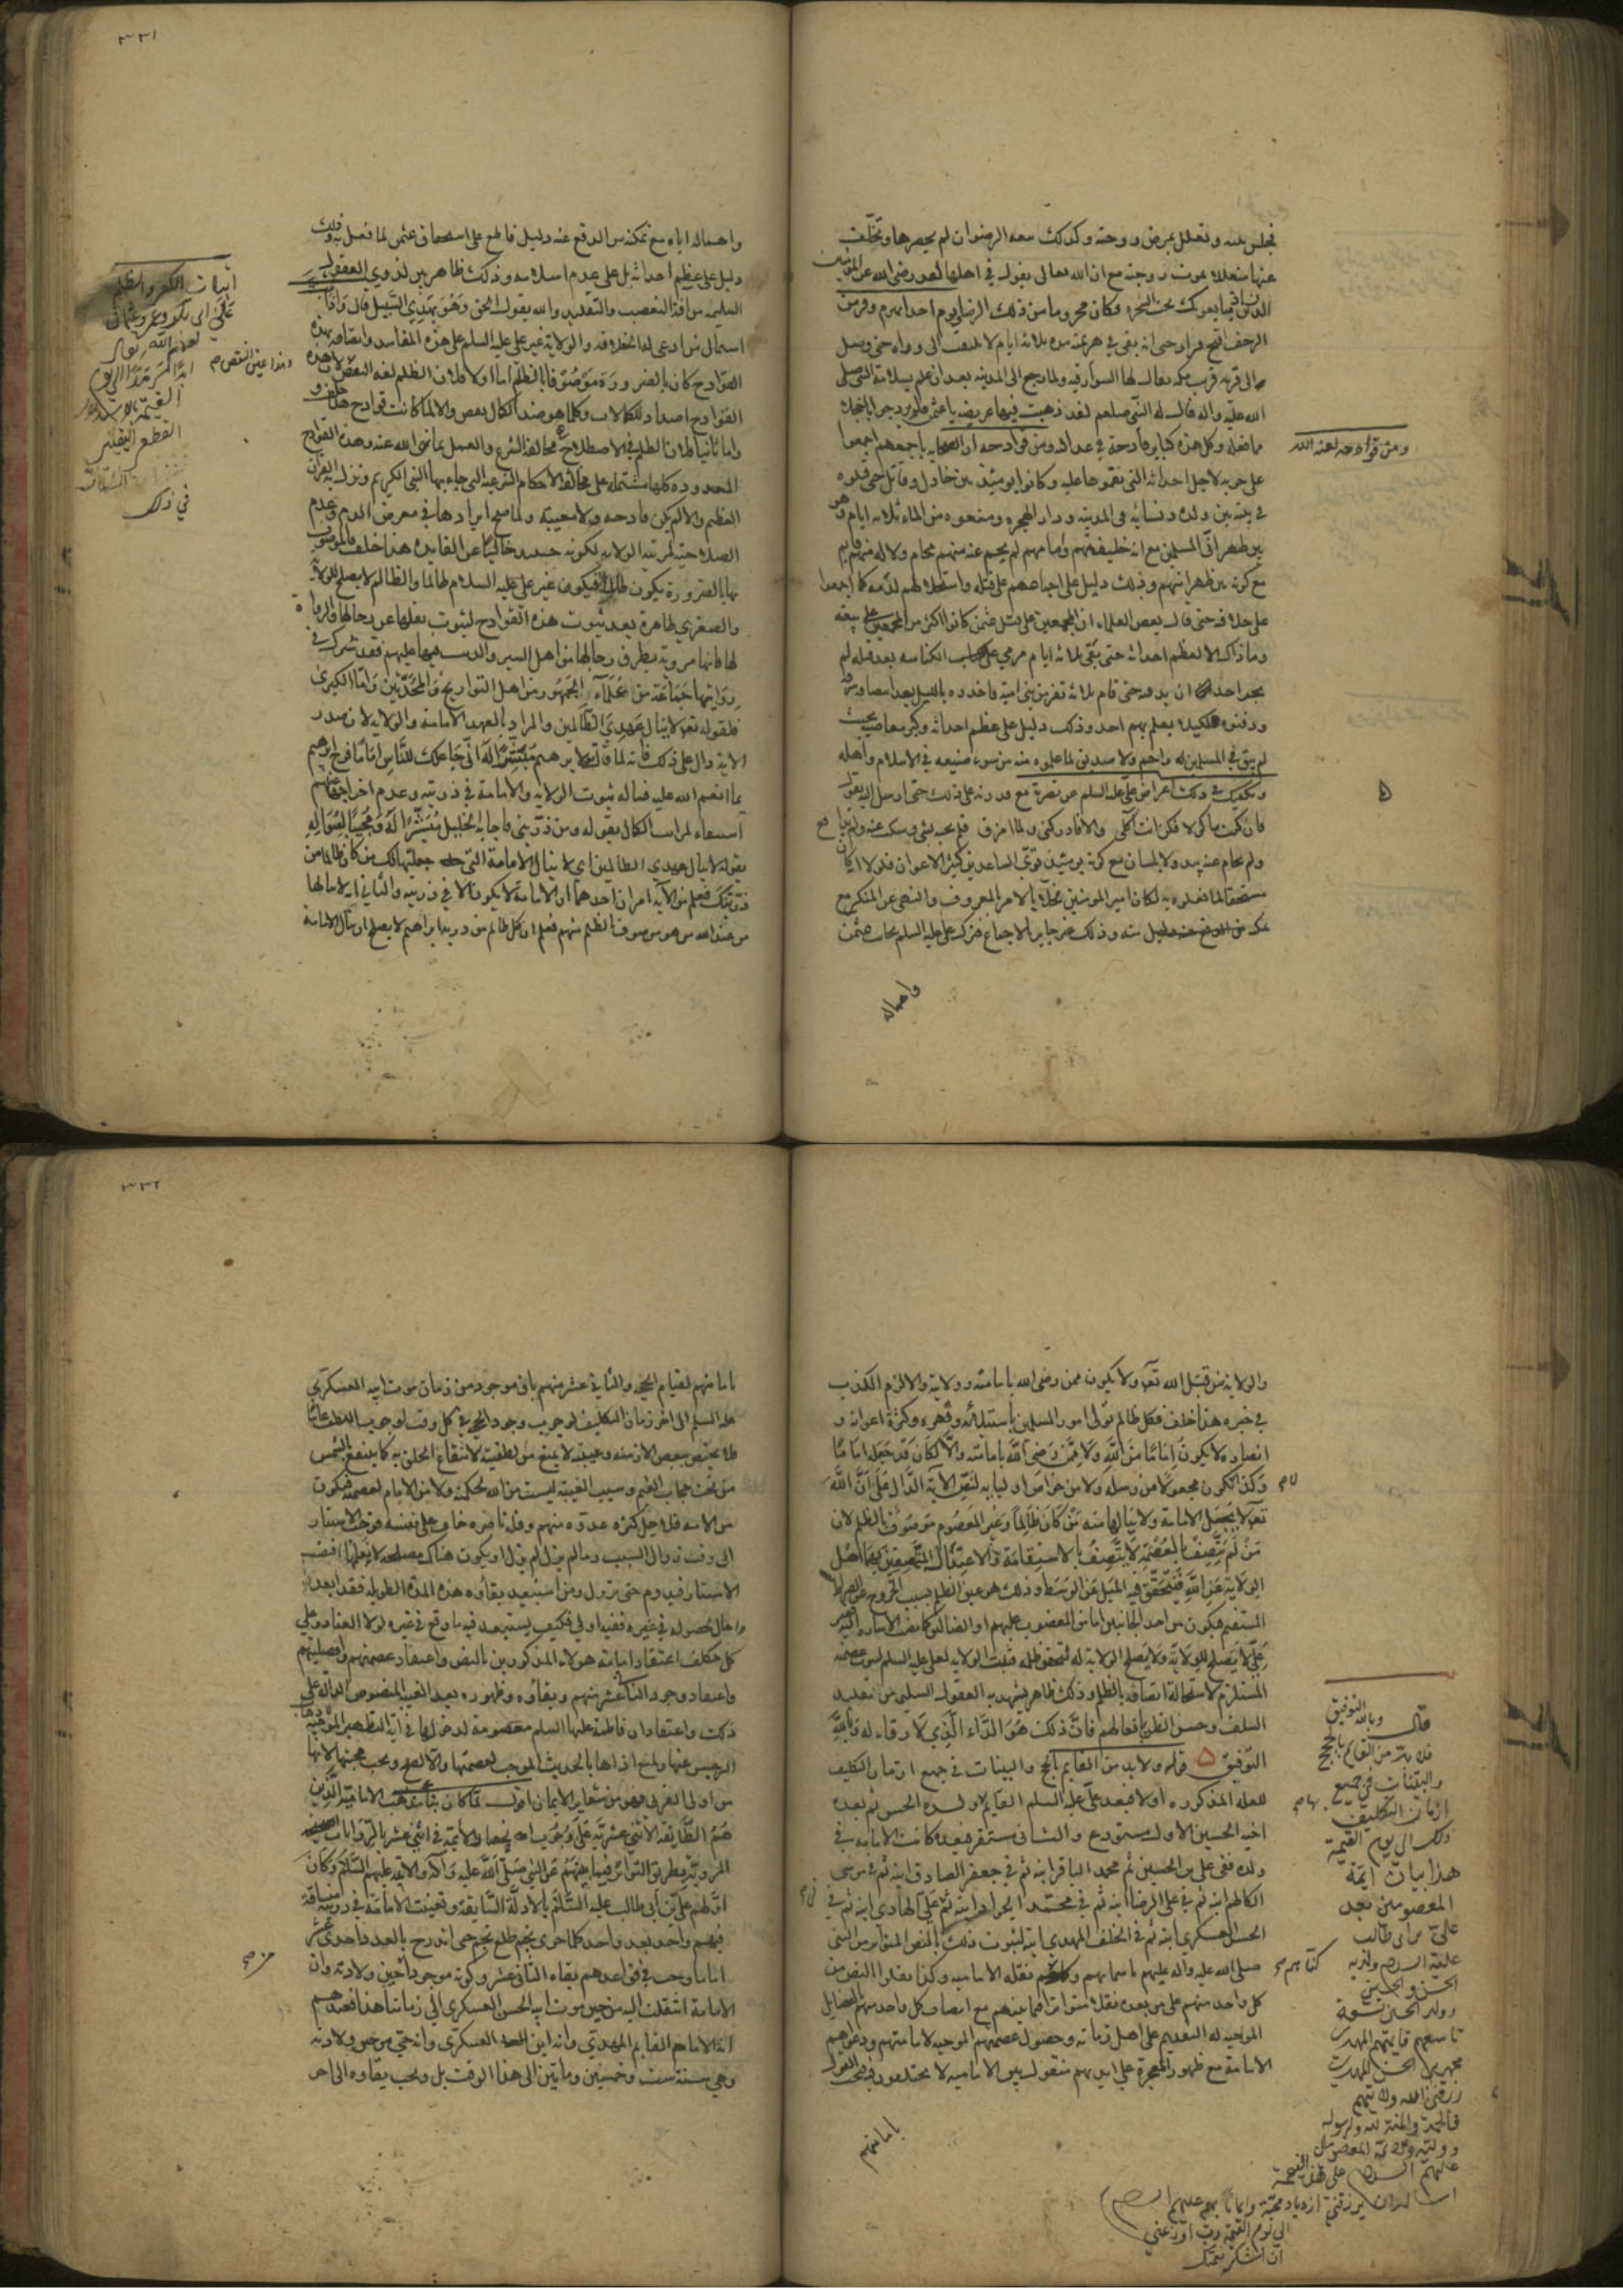 ومن قوادحه لعنه الله
فتخلف عنه وتعلل بمرض زوجته وكذلك بيعة الرضوان لم يحضرها وتخلف
عنها متعللا بموت زوجته مع ان الله تعالى يقول في اهلها لقد رضي الله عن المؤمنين
اذ يبايعونك تحت الشجرة فكان محروما من ذلك الرضا ويوم احد انهزم وفر من
الزحف اقبح فرار حتى انه بقي في هزيمته مدة ثلاثة ايام لا يلتفت الى وراه حتى وصل
الى قرية قرب مكة يقال لها السوارقية ولما رجع الى المدينة بعد ان علم بسلامة النبي صلى
الله عليه واله قال له النبي صلعم لقد ذهبت فيها عريضة يا عثمن
ما فعله وكل هذه كباير قادحة في عدالته ومن قوادحه ان الصحابة باجمعهم اجمعوا
على حربه لاجل احداثه التي نقموها عليه وكانوا يومئذ بين خاذل وقاتل حتى قتلوه
في بيته بين ولده ونسائه في المدينة ودار الهجرة ومنعوه من الماء ثلاثة ايام وهو
بين ظهراني المسلمين مع انه خليفتهم وامامهم لم يحم عنه منهم محام ولا له منهم
مع كونه بين ظهرانيهم وذلك دليل على اجماعهم على قتله واستحلالهم لدمه كما اجمعوا
على خلافه حتى قال بعض العلماء ان المجمعين على قتل عثمن كانوا اكثر من المجمعين على بيعته
وما ذاك الا لعظم احداثه حتى بقى ثلاثة ايام مرمي على الكناسة بعد قتله لم
يجسر احد ان يدفنه حتى قام ثلاثة نفر من بني امية فاخذوه بالليل
ودفنوه لكيلا يعلم بهم احد وذلك دليل على عظم احداثه وكبر معاصيه بحيث
لم يبق في المسلمين له راحم ولا صديق لما علموه منه من سوء صنيعه في الاسلام واهله
ويكفيك في ذلك اعراض علي عليه السلم عن نصرته مع قدرته على ذلك حتى ارسل اليه يقول
فان كنت ماكولا فكن انت اكلي والا فادركني ولما امزق فلم يجبه بشي وسكت عنه
ولم يحام عنه بيد ولا بلسان مع كونه يومئذ قوي الساعد كثير الاعوان فلولا انه كان
مستحقا لما فعلوه به لكان امير المؤمنين مخلا بالامر بالمعروف والنهي عن المنكر مع
تمكنه منه وذلك غير جايز بالاجماع فترك علي عليه السلم نصرت عثمن
واهماله
٣٣١
واهماله اياه مع تمكنه من الدفع عنه دليل قاطع على استحقاق عثمن لما فعل به وذلك
دليل على عظيم احداثه بل على عدم اسلامه وذلك ظاهر بين لذوي العقول
السليمة من افة التعصب والتقليد والله يقول الحق وهو يهدي السبيل قال واذا
اشتمال من ادعى له الخلافة والولاية غير علي عليه السلم على هذه المفاسد واتصافه بهذه
القوادح كان بالضرورة موصوفا بالظلم اما اولا فلان الظلم لغة النقص وهذه
القوادح اضداد للكمالات وكلما هو ضد الكمال نقص والا لما كانت قوادح هذا خلف و
واما ثانيا فلان الظلم في الاصطلاح مخالفة الشرع والعمل بما نهى الله عنه وهذه القوادح
المعدودة كلها مشتملة على مخالفة الاحكام الشرعية التي جاء بها النبي الكريم ونزل به القران
العظيم والا لم يكن قادحة ولا معيبة ولما صح ايرادها في معرض الذم وعدم
الصلاحية لمرتبة الولاية لكونه حينئذ خاليا عن الفايدة هذا خلف فالموصوف
بها بالضرورة يكون ظالما فيكون غير علي عليه السلام ظالما والظالم لا يصلح للولاية
والصغرى ظاهرة بعد ثبوت هذه القوادح لثبوت نقلها عن رجالها والرواة
لها فانها مروية بطرق رجالها من اهل السير
روايتها جماعة من علماء الجمهور من اهل التواريخ والمحدثين واما الكبرى
فلقوله تعالى لا ينال عهدي الظالمين والمراد بالعهد الامامة والولاية لان صدر
الاية دال على ذلك فانه لما قال لابرهيم مبشرا له اني جاعلك للناس اماما فرح ابرهيم
بما انعم الله عليه فساله ثبوت الولاية والامامة في ذريته وعدم اخراجها عنهم
استيفاء لمراتب الكمال بقوله ومن ذريتي فاجابه الجليل مبشرا له ومجيبا لسؤاله
بقوله لا ينال عهدي الظالمين اي لا ينال الامامة التي جعلتها لك من كان ظالما من
ذريتك فعلم من الاية امران احدهما ان الامامة لا يكون الا في ذريته والثاني انه لا ينالها
من عند الله من هو موصوف بالظلم منهم فعلم ان كل ظالم من ذرية ابراهيم لا يصلح ان ينال الامامة
اثبات الكفر والظلم
على ابي بكر وعمر وعثمان
لعنهم الله تعالى
ابدا سرمدا الى يوم
القيمة
القطع اليقيني
في ذلك
وهذا عين النقص صح
والولاية من قبل الله تعالى ولا يكون ممن رضي الله بامامته وولايته والا لزم الكذب
في خبره هذا خلف فكل ظالم تولى امور المسلمين باستيلائه وقهره وكثرة اعوانه و
انصاره لا يكون اماما من الله ولا ممن رضي الله بامامته والا لكان قد جعله اماما
وكذا لا يكون مجعولا من رسله ولا من خواص اوليائه لنص الاية الدال على ان الله
تعالى لا يجعل الامامة ولا ينالها منه من كان ظالما وغير المعصوم موصوف بالظلم لان
من لم يتصف بالعصمة لا يتصف بالاستقامة والاعتدال المتصفين بهما اهل
الولاية عن الله فيتحقق فيه الميل عن الوسط وذلك هو عين الظلم بسبب الخروج عن الصراط
المستقيم فيكون من احد الجانبين اما من المغضوب عليهم او الضالين كما مضت الاشارة اليه فغير
علي لا يصلح للولاية ولا يصلح الولاية له لتحقق ظلمه فتثبت الولاية لعلي عليه السلم لثبوت عصمته
المستلزم لاستحالة اتصافه بالظلم وذلك ظاهر يشهد به العقول السليمة من تقليد
السلف وحسن الظن بافعالهم فان ذلك هو الداء الذي لا دواء له وبالله
التوفيق قوله ولا بد من القايم بالحجج والبينات في جميع ازمان التكليف
للعلة المذكورة اولا فبعد علي عليه السلم القايم بها ولده الحسن ثم بعده
اخيه الحسين الاول مستودع والثاني مستقر فبعده كانت الامامة في
ولده ففي علي بن الحسين ثم محمد الباقر ابنه ثم في جعفر الصادق ابنه ثم في موسى
الكاظم ابنه ثم في علي الرضا ابنه ثم في محمد الجواد ابنه ثم علي الهادي ابنه ثم في
الحسن العسكري ابنه ثم في الخلف المهدي ابنه لثبوت ذلك بالنص المتواتر من النبي
صلى الله عليه واله عليهم باسمائهم نقله الامامية وكذا نقلوا النص من
كل واحد منهم على من بعده نقلا متواترا فيما بينهم مع اتصاف كل واحد منهم بالفضايل
الموجبة له التقديم على اهل زمانه وحصول عصمتهم الموجبة لامامتهم ودعواهم
الامامة مع ظهور المعجزة على ايديهم منقول بين الامامية لا يختلفون فيه فيجب القول
بامامتهم
قال وبالله التوفيق
فلا بد من القايم بالحجج
والبينات في جميع
ازمان التكليف
ذلك الى يوم القيمة
هذا بيان ائمة
المعصومين بعد
علي بن ابي طالب
عليه السلام ولديه
الحسن والحسين
وولد الحسين تسعة
تاسعهم قايمهم المهدي
محمد بن الحسن المهدي
رزقني الله ولايتهم
فالحمد والمنة لله ولرسوله
ووليه والائمة المعصومين
عليهم السلام على هذه النعمة
اسال الله ان يرزقني ازدياد محبة وايمانا بهم عليهم السلام
الى يوم القيمة رب اوزعني
ان اشكر نعمتك
٣٣٢
بامامتهم لقيام الحجة والثاني عشر منهم باق موجود من زمان موت ابيه العسكري
عليه السلم الى اخر زمان التكليف لوجوب وجود الحجة في كل وقت لوجوب اللطف عاما
فلا يختص ببعض الازمنة وغيبته لا يمنع من لطفيته لانتفاع الخلق به كما ينتفع بالشمس
من تحت حجاب الغيم وسبب الغيبة ليست من الله لحكمته ولا من الامام لعصمته فيكون
من الامة فلاجل كثرة عدوه منهم وقلة ناصره خاف على نفسه فوجب الاستتار
الى وقت زوال السبب وما لم يزل لم يزل او يكون هناك مصلحة لا نعلمها اقتضت
الاستتار فيدوم حتى تزول ومن استبعد بقاؤه هذه المدة الطويلة فقد ابعد
واحال لحصوله في غيره ففيه اولى فكيف يستبعد فيه ما وقع في غيره لولا العناد وعلى
كل مكلف اعتقاد امامة هولاء المذكورين بالنص واعتقاد عصمتهم وافضليتهم
واعتقاد وجود الثاني عشر منهم وبقاؤه وظهوره بعد الغيبة للنصوص الدالة على
ذلك واعتقاد ان فاطمة عليها السلم معصومة لدخولها في اية التطهير الموجبة لاذهاب
الرجس عنها ولمنع اذاها بالحديث الموجب لعصمتها ويجب محبتها لانها
من اولى القربى فهو من شعاير الايمان اقول لما كان بناء مذهب الامامية الذين
هم الطايفة الاثني عشرية على وجوب انحصار الائمة في اثني عشر بالروايات الصحيحة
المروية بطريق التواتر فيما بينهم عن النبي صلى الله عليه واله والائمة عليهم السلام وكان
اولهم علي بن ابي طالب عليه السلام بالادلة السابقة وتعينت الامامة في ذريته
فيهم واحد بعد واحد كلما هوى نجم طلع نجم حتى اندرج بالعد فاحدى عشر
اماما وجب في قواعدهم بقاء الثاني عشر وكونه موجودا حين ولادته وان
الامامة انتقلت اليه من حين موت ابيه الحسن العسكري الى زماننا هذا فعندهم
انه الامام القايم المهدي وانه ابن الحسن العسكري وانه حي من حين ولادته
وهي سنة ست وخمسين ومايتين الى هذا الوقت بل ويجب بقاوه الى اخر